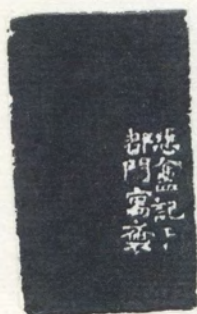 悲盦記于
都門寓齋